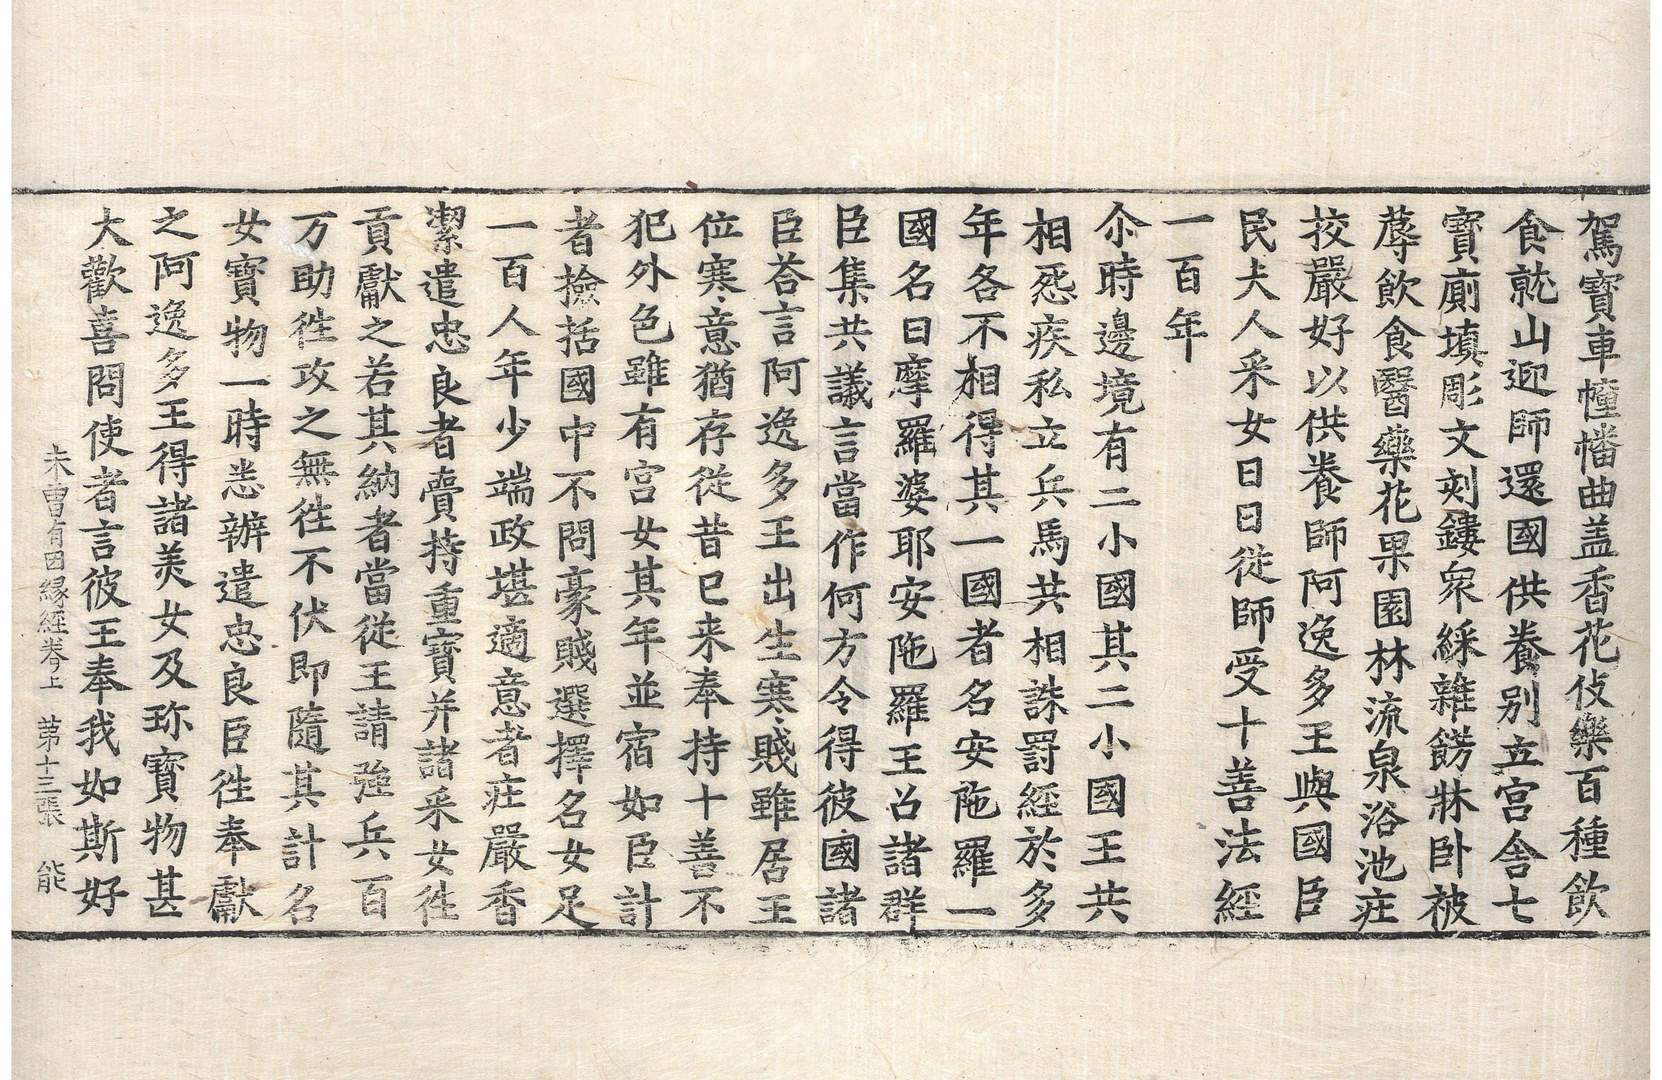 駕寶車幢幡曲盖香花伎樂百種飲
食就山迎師還國供養別立宮舍七
寶廁塡彫文刻鏤衆綵雜餝牀卧被
蓐飲食醫藥花果園林流泉浴池庄
挍嚴好以供養師阿逸多王與國臣
民夫人采女日日從師受十善法經
一百年
尒時邊境有二小國其二小國王共
相怨疾私立兵馬共相誅罸經於多
年各不相得其一國者名安陁羅一
國名曰摩羅婆耶安陁羅王召諸群
臣集共議言當作何方令得彼國諸
臣荅言阿逸多王出生寒賤雖居王
位寒意猶存從昔已来奉持十善不
犯外色雖有宮女其年並宿如臣計
者撿括國中不問豪賤選擇名女足
一百人年少端政堪適意者庄嚴香
潔遣忠良者賷持重寶并諸采女徃
貢獻之若其納者當從王請强兵百
万助徃攻之無徃不伏即隨其計名
女寶物一時悉辦遣忠良臣徃奉獻
之阿逸多王得諸美女及珎寶物甚
大歡喜問使者言彼王奉我如斯好
未曾有因縁經卷上 第十三張 能